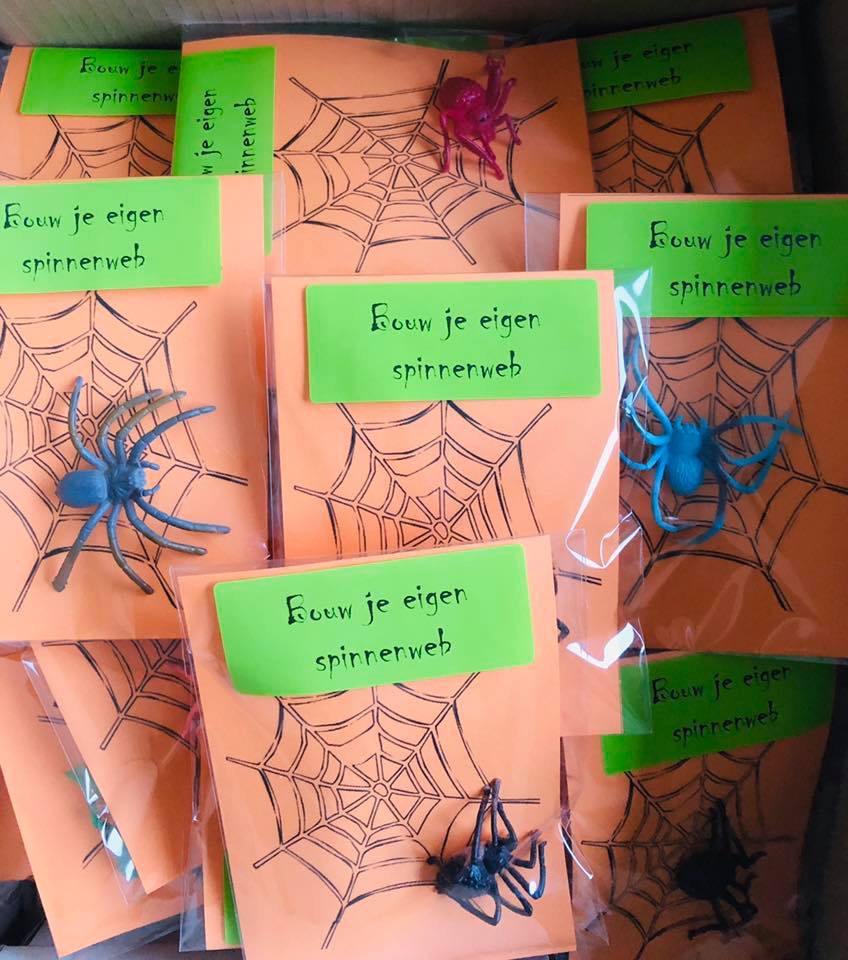 Bouw je e
spinnenw
w je eigen
innenweb
je eigen
pinnenweb
Bouw je eigen
spinnenweb
Bouw je eigen
spinnenweb
Bouw je eigen
spinnenweb
Bouw je eigen
spinnenweb
Bouw je eigen
spinnenweb